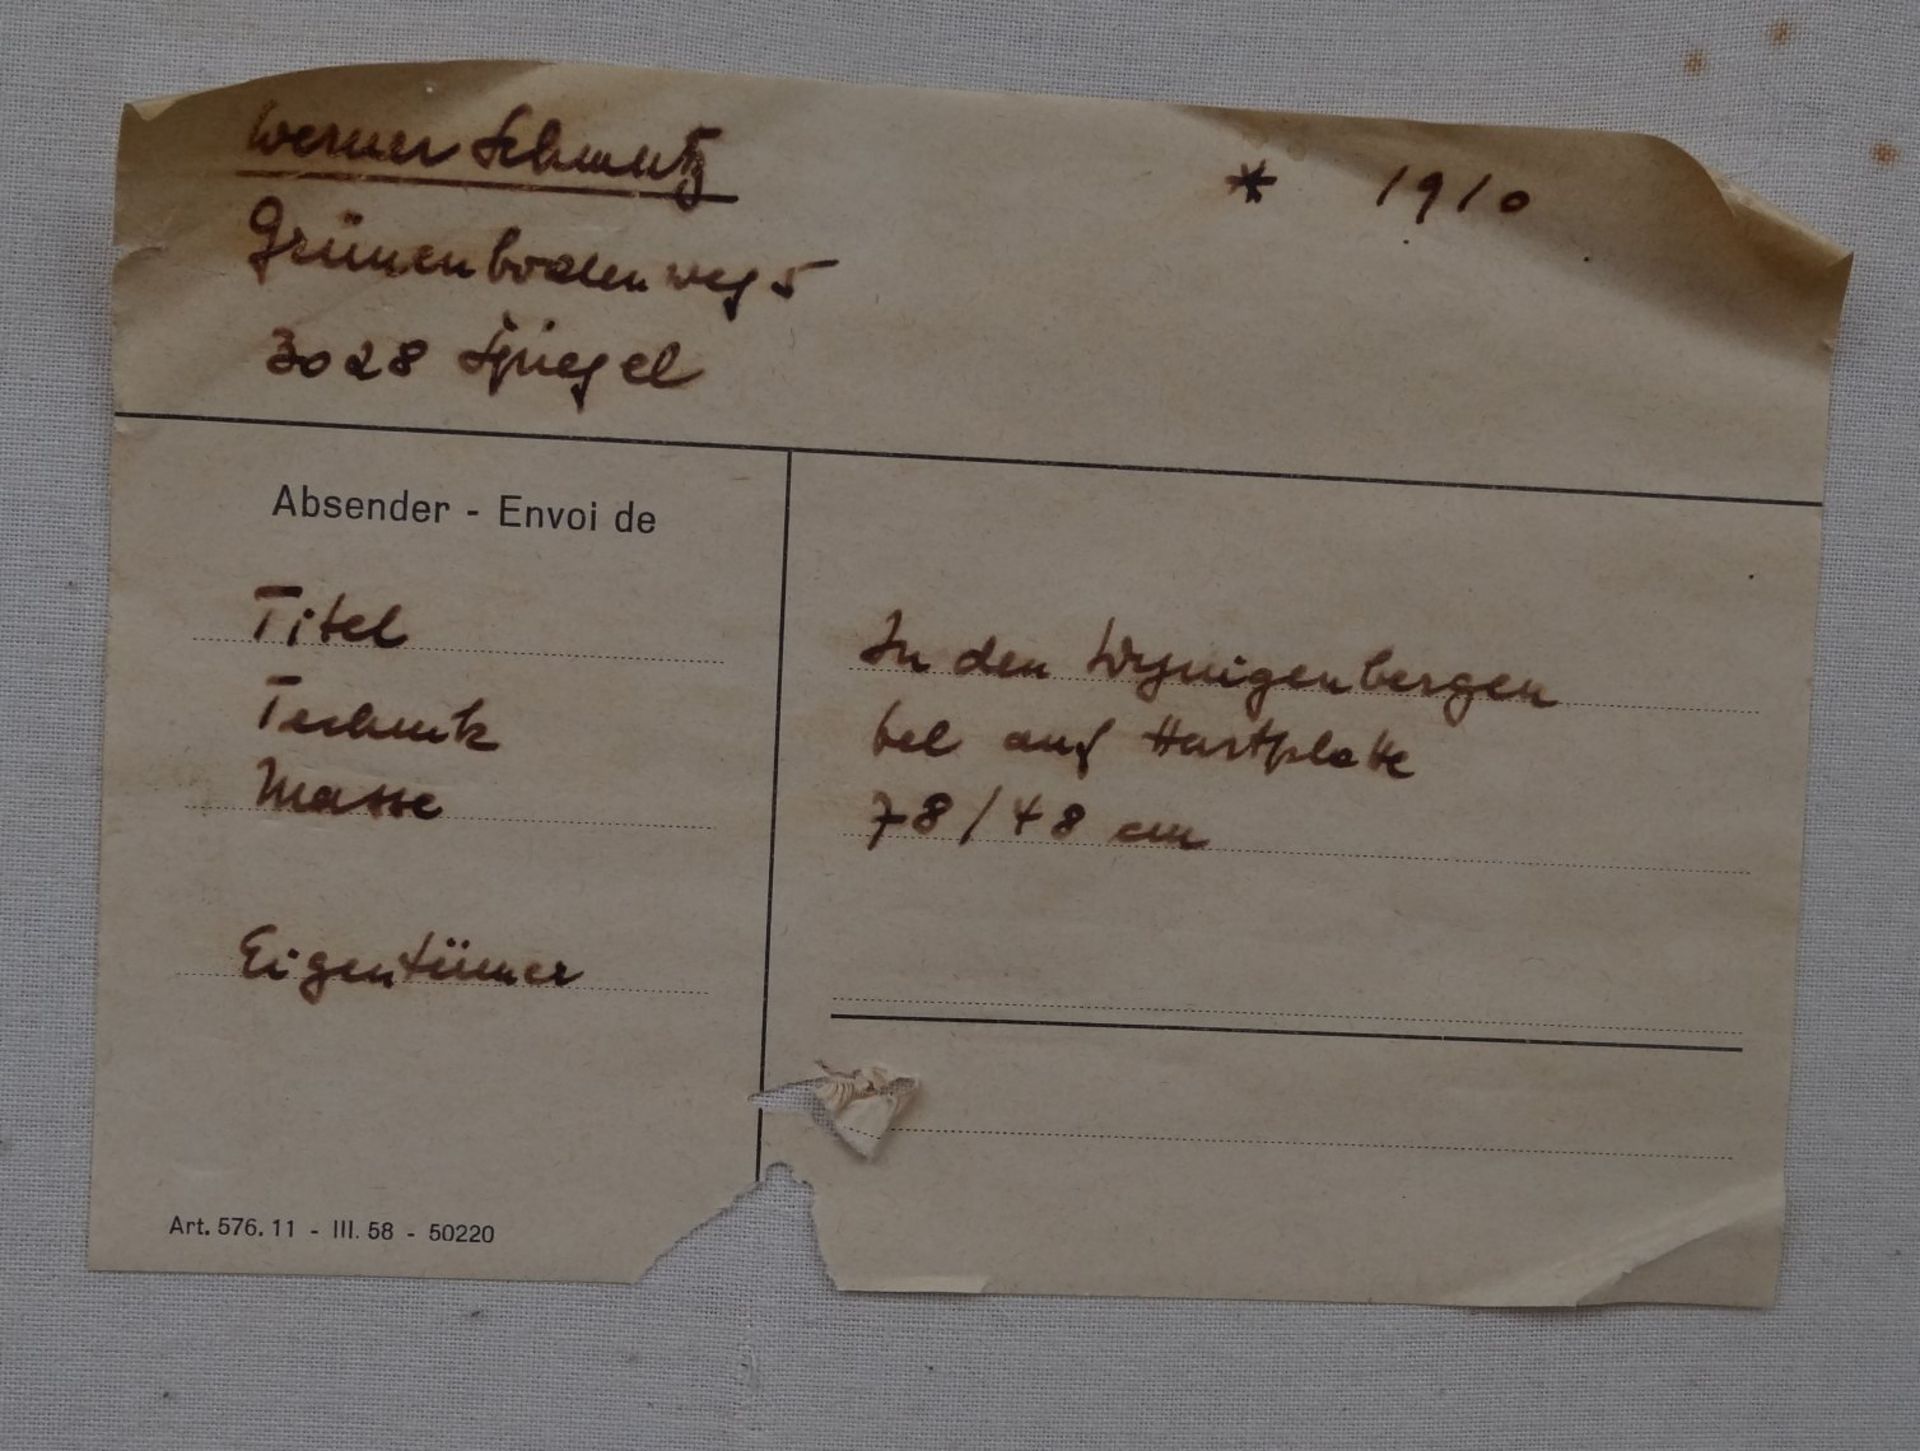 Werner Schmutz * 1910
Grünenbodenweg 5
3028 Spiegel
Absender - Envoi de
Titel In den Wynigenbergen
Technik Oel auf Hartplatte
Masse 78/48 cm
Eigentümer
Art. 576.11 - III. 58 - 50220